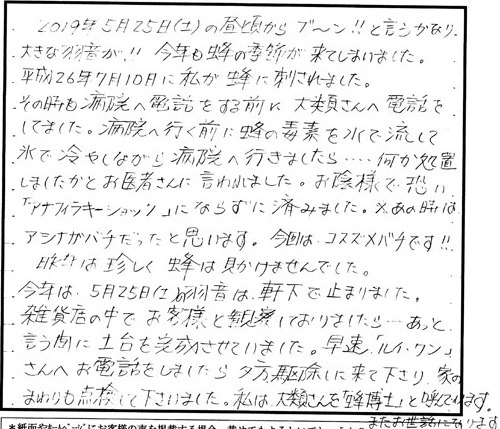 2019年5月25日(土)の昼頃からブ〜ン!!と言うかなり
大きな羽音が!! 今年も蜂の季節が来てしまいました。
平成26年7月10日に私が蜂に刺されました。
その時も病院へ電話をする前に大類さんへ電話を
してました。病院へ行く前に蜂の毒素を水で流して
氷で冷やしながら病院へ行きましたら……何か処置
しましたかとお医者さんに言われました。お陰様で恐い
「アナフィラキーショック」にならずに済みました。※あの時は
アシナガバチだったと思います。今回はコスズメバチです!!
昨年は珍しく蜂は見かけませんでした。
今年は、5月25日(土)の羽音は軒下で止まりました。
雑貨店の中でお客様と観察しておりましたら…あっと
言う間に土台を完成させていました。早速「ルイ・ワン」
さんへお電話をしましたら夕方駆除に来て下り家の
まわりも点検して下さいました。私は大類さんを「蜂博士」と呼んでます。
またお世話になります
*紙面やホームページにお客様の声を掲載する場合、載せてもよろしいで